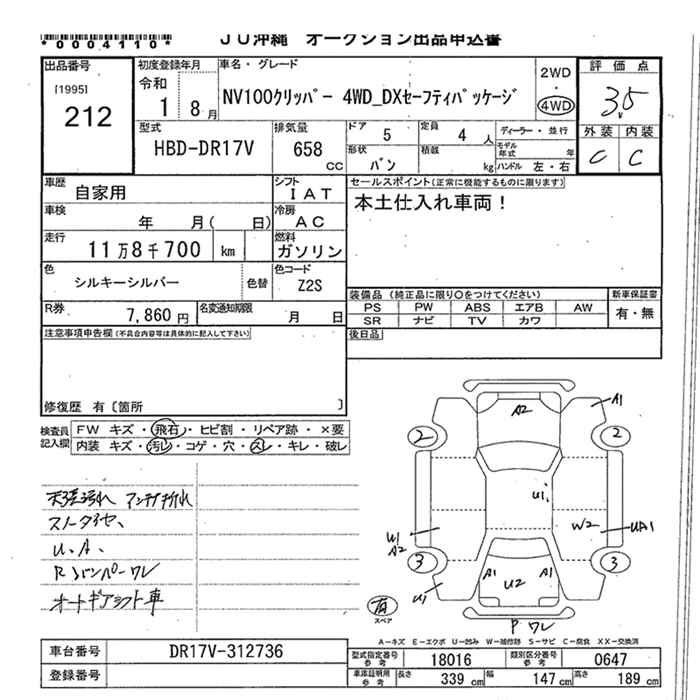 *0004110*
JU沖縄 オークション出品申込書
出品番号
[1995]
212
初度登録年月
令和
1 8月
車名・グレード
NV100クリッパー 4WD_DXセーフティパッケージ
2WD
4WD
評価点
3.5
外装 内装
C C
型式
HBD-DR17V
排気量
658
CC
ドア 5
定員 4 人
形状 バン
積載 kg
ディーラー・並行
モデル年式 年
ハンドル 左・右
車歴
自家用
シフト
IAT
車検
年 月( 日)
冷房
AC
走行
11万8千700 km
燃料
ガソリン
色
シルキーシルバー
色替
色コード
Z2S
R券
7,860円
名変通知期限
月 日
セールスポイント(正常に機能するものに限ります)
本土仕入れ車両!
装備品(純正品に限り○をつけてください)
新車保証書
PS PW ABS エアB AW
SR ナビ TV カワ
有・無
後日品
注意事項申告欄(不具合内容等は具体的に記入して下さい)
修復歴 有〔箇所 〕
検査員記入欄
FW キズ・飛石・ヒビ割・リペア跡・×要
内装 キズ・汚レ・コゲ・穴・スレ・キレ・破レ
天張汚れ アンテナ折れ
スノータイヤ、
U、A、
Rバンパーワレ
オートギアシフト車
A2
A1
2
2
U1
U1
A2
W2
UA1
3
3
A1
U2
A1
U1
有
スペア
P ワレ
A-キズ E-エクボ U-凹み W-補修跡 S-サビ C-腐食 XX-交換済
車台番号
DR17V-312736
登録番号
型式指定番号
参考
18016
類別区分番号
参考
0647
車庫証明用
参考
長さ 339 cm
幅 147 cm
高さ 189 cm